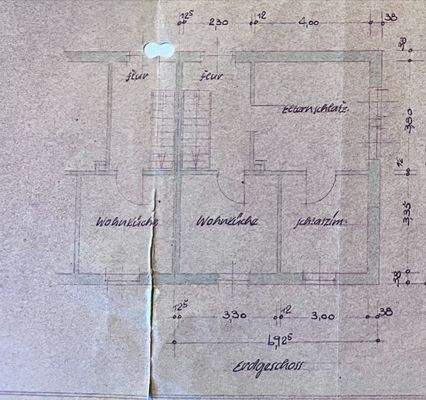 12⁵ 2,30 12 4,00 38
38
flur flur
Elternschlafz.
3,80
12
Wohnküche Wohnküche schlafzim.
3,35
38
12⁵ 3,30 12 3,00 38
6,92⁵
Erdgeschoss